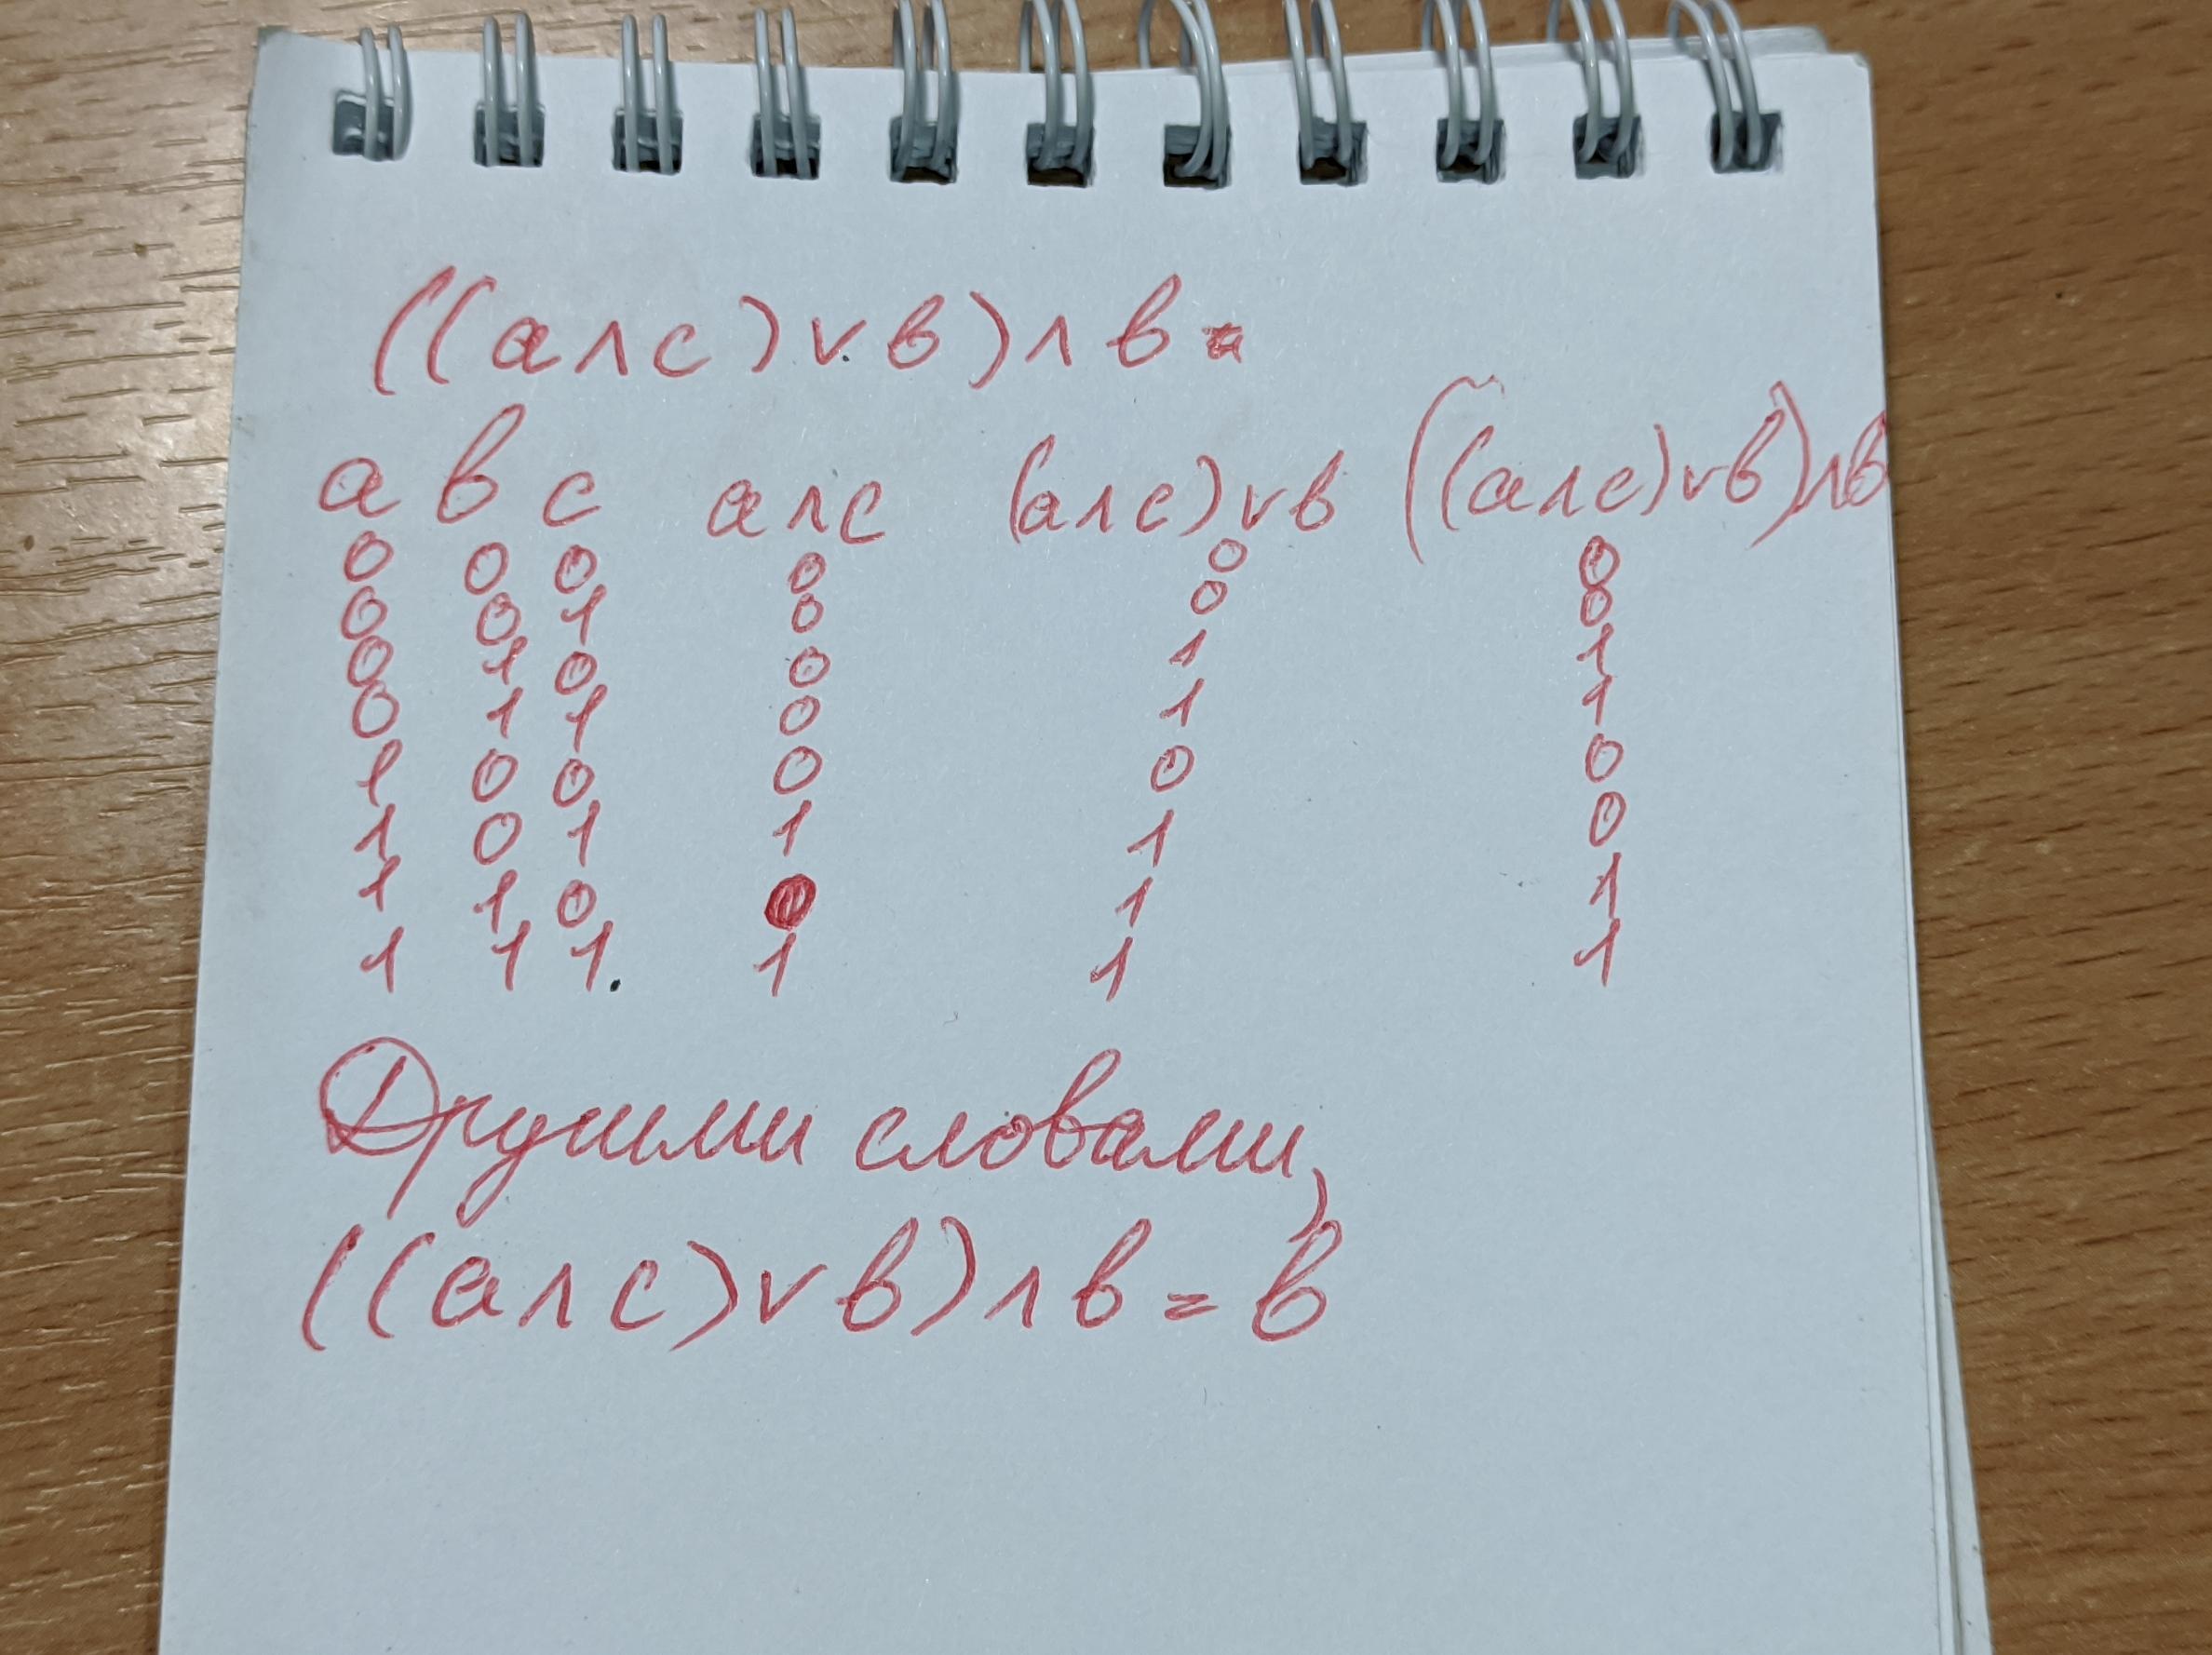 ((a∧c)∨в)∧в=
a в c a∧c (a∧c)∨в ((a∧c)∨в)∧в
0 0 0 0 0 0
0 0 1 0 0 0
0 1 0 0 1 1
0 1 1 0 1 1
1 0 0 0 0 0
1 0 1 1 1 0
1 1 0 0 1 1
1 1 1 1 1 1
Другими словами,
((a∧c)∨в)∧в=в